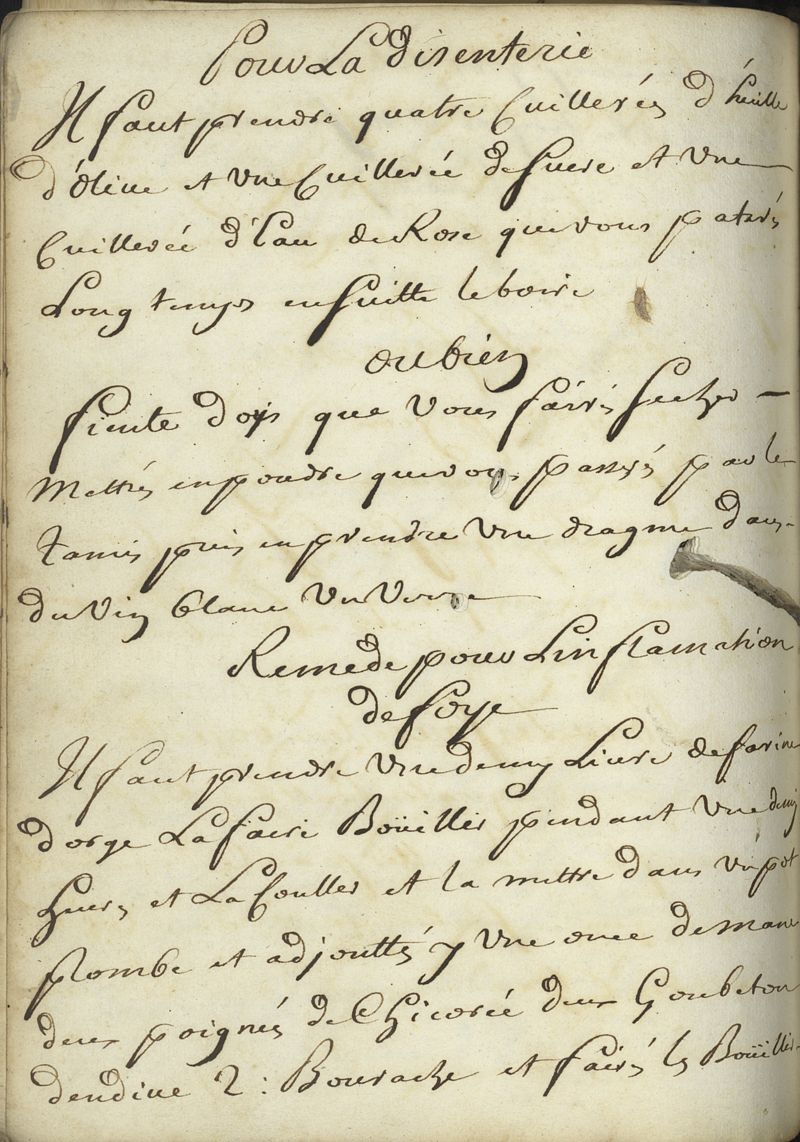 Pour La disenterie
Il faut prendre quatre Cuillerées d'huille
d'Olive et une Cuillerée de sucre et une
Cuillerée d'Eau de Rose que vous
Long temps ensuitte le boire
ou bien
fiente doys que vous fairés secher
Mettrés en poudre que vous passés par le
tamis puis en prendre une dragme dans
du vin blanc un verre
Remede pour Linflamation
de foye
Il faut prendre une demy Livre de farine
dorge La faire Boüillir pendant une demy
heure et La Couller et la mettre dans un pot
plombe et adjouttés y une once de mane
deux poignés de Chicorée deux
dendive 2 : Bourache et fairés les Boüillir